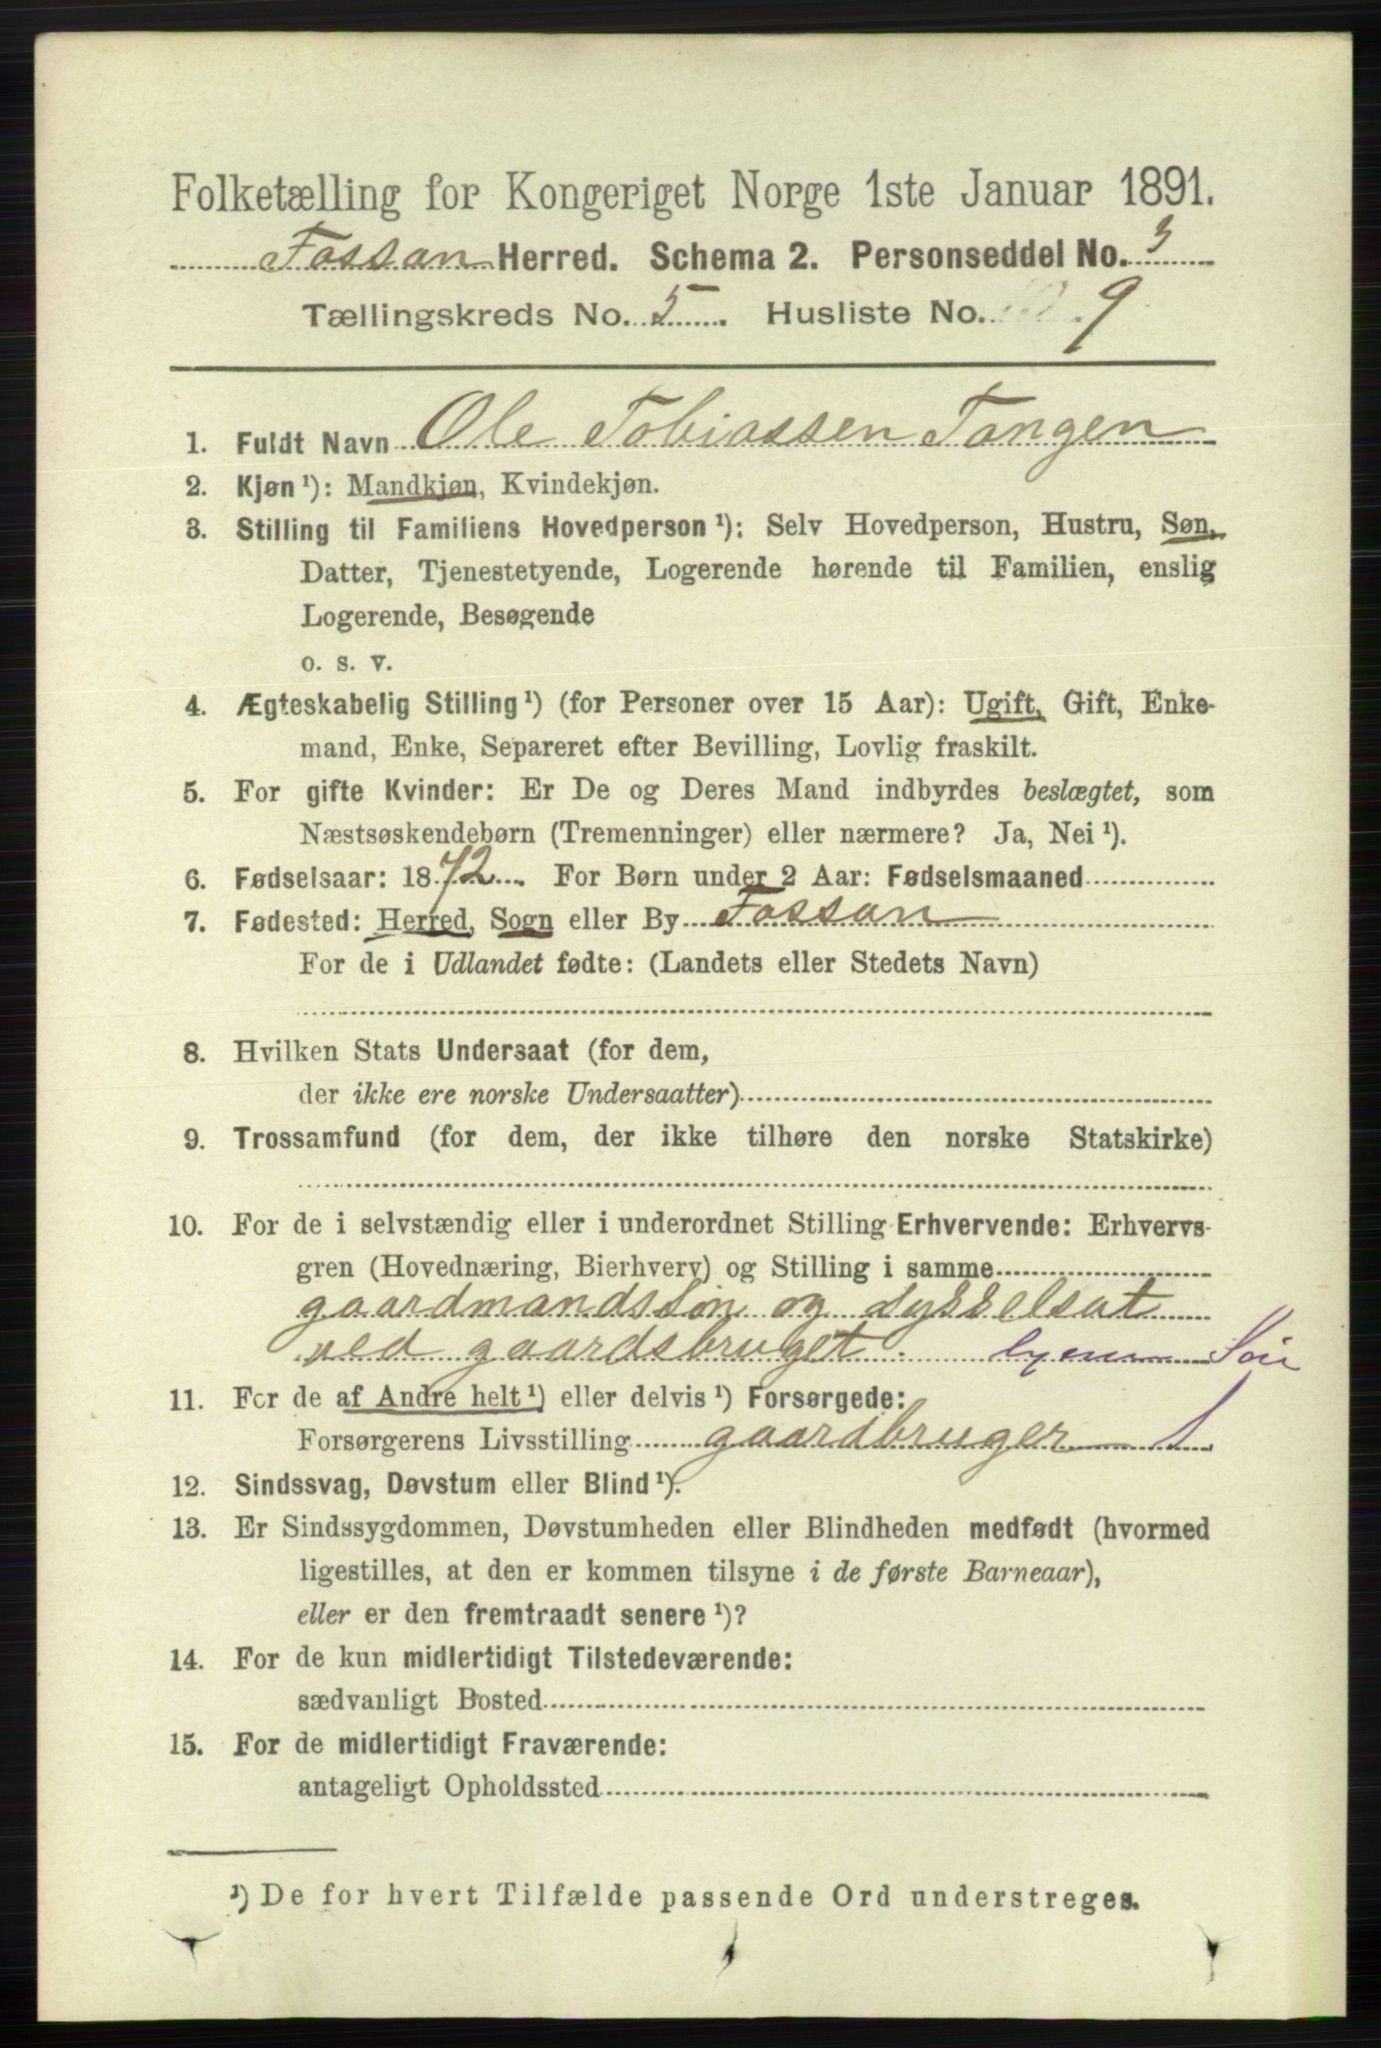 Folketælling for Kongeriget Norge 1ste Januar 1891.
Fossan Herred. Schema 2. Personseddel No. 3
Tællingskreds No. 5. Husliste No. 9
1. Fuldt Navn Ole Tobiassen Tangen
2. Kjøn ¹): Mandkjøn, Kvindekjøn.
3. Stilling til Familiens Hovedperson ¹): Selv Hovedperson, Hustru, Søn,
Datter, Tjenestetyende, Logerende hørende til Familien, enslig
Logerende, Besøgende
o. s. v.
4. Ægteskabelig Stilling ¹) (for Personer over 15 Aar): Ugift, Gift, Enke-
mand, Enke, Separeret efter Bevilling, Lovlig fraskilt.
5. For gifte Kvinder: Er De og Deres Mand indbyrdes beslægtet, som
Næstsøskendebørn (Tremenninger) eller nærmere? Ja, Nei ¹).
6. Fødselsaar: 1872. For Børn under 2 Aar: Fødselsmaaned
7. Fødested: Herred, Sogn eller By Fossan
For de i Udlandet fødte: (Landets eller Stedets Navn)
8. Hvilken Stats Undersaat (for dem,
der ikke ere norske Undersaatter)
9. Trossamfund (for dem, der ikke tilhøre den norske Statskirke)
10. For de i selvstændig eller i underordnet Stilling Erhvervende: Erhvervs-
gren (Hovednæring, Bierhverv) og Stilling i samme
gaardmandssøn og sysselsat
ved gaardsbruget. Søn
11. For de af Andre helt ¹) eller delvis ¹) Forsørgede:
Forsørgerens Livsstilling gaardbruger 1
12. Sindssvag, Døvstum eller Blind ¹).
13. Er Sindssygdommen, Døvstumheden eller Blindheden medfødt (hvormed
ligestilles, at den er kommen tilsyne i de første Barneaar),
eller er den fremtraadt senere ¹)?
14. For de kun midlertidigt Tilstedeværende:
sædvanligt Bosted
15. For de midlertidigt Fraværende:
antageligt Opholdssted
¹) De for hvert Tilfælde passende Ord understreges.